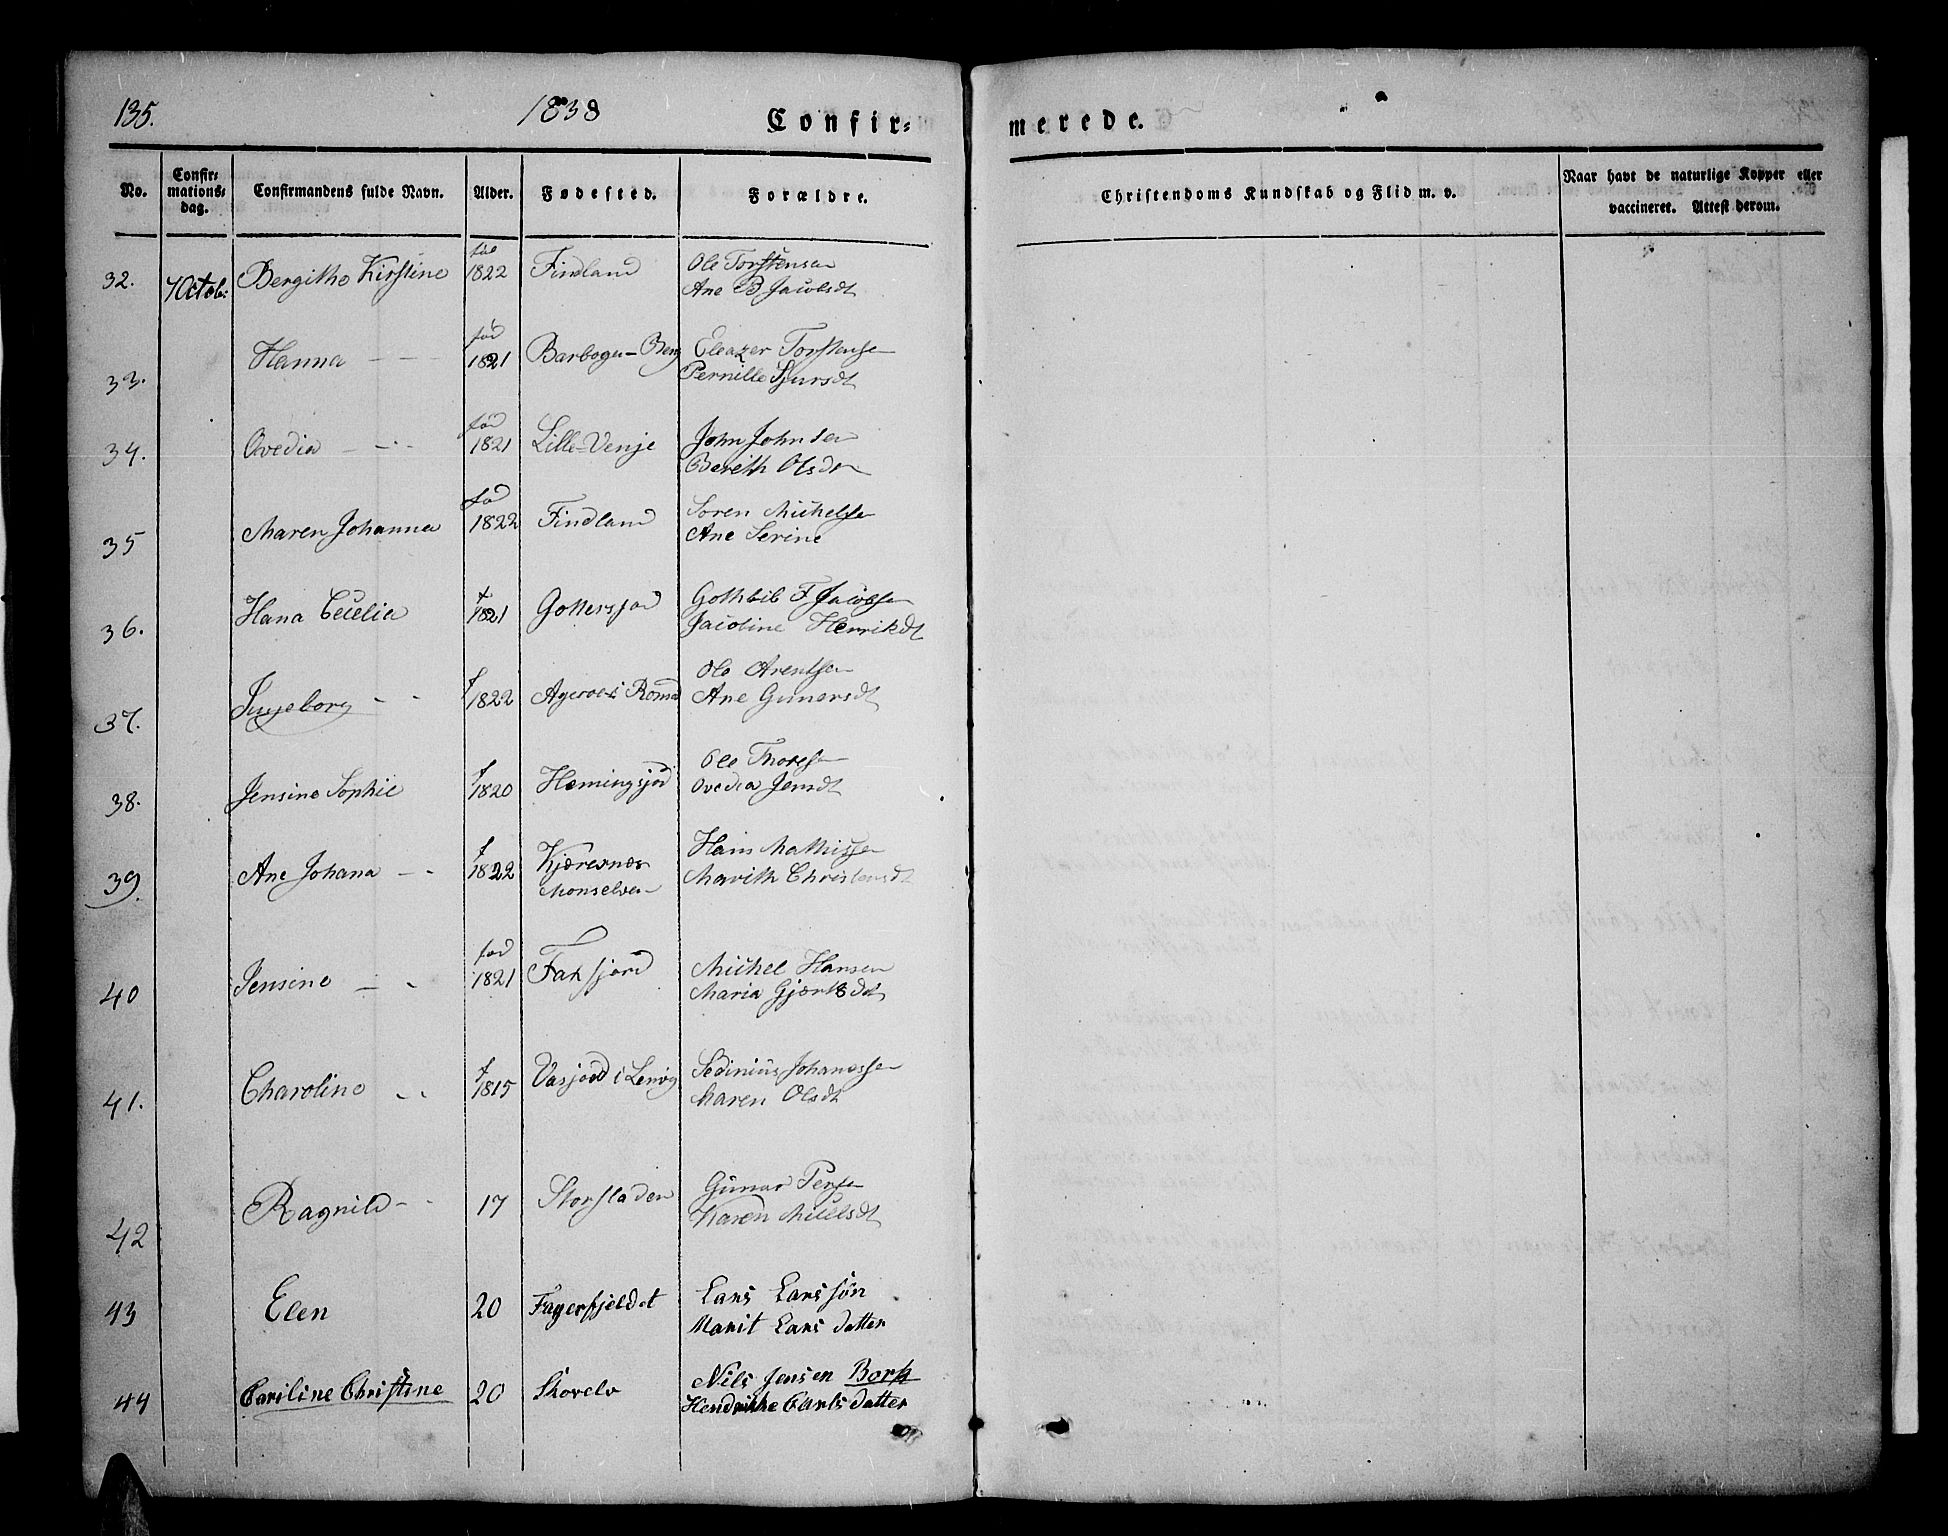 135.
1838
Confir=
merede.
No.
Confir-
mations-
dag.
Confirmandens fulde Navn.
Alder.
Fødested.
Forældre.
Christendoms Kundskab og Flid m. v.
Naar havt de naturlige Kopper eller
vaccineret. Attest derom.
32. 7 Octob: Bergithe Kirstine fød 1822 Findland Ole Torstensen
Ane B Jacobsdt
33. Hanna - - fød 1821 Barbogen-Berg Eleazer Torstense
Pernille Sjursdt
34. Ovedia - - fød 1821 Lille-Venje John Johnsen
Bereth Olsda
35 Maren Johanna fød 1822 Findland Søren Michelsen
Ane Serine
36. Hana Cecelia f 1821 Gottersjord Gothlib F Jacobsen
Jacobine Henrikdt
37. Ingeborg - - f 1822 Ageroe i Romsd Ole Arentsen
Ane Gunersdt
38. Jensine Sophie f 1820 Hemingsjord Ole Thoresen
Ovedia Jensdt
39. Ane Johana - - f 1822 Kjæresnes
Monselven Hans Mathissen
Marith Christensdt
40 Jensine - - fød 1821 Faxfjord Michel Hansen
Maria Gjertsdt
41. Charoline - - f 1815 Vasjord i Lenvig Sedinius Johanessen
Maren Olsdt
42 Ragnild - - 17 Storsladen Gunar Perse
Karen Nielsdt
43 Elen 20 Fagerfjeldet Lars Larssøn
Marit Lars datter
44 Cariline Christine 20 Skovelv Nils Jensen Bork
Hendrikke Carls datter